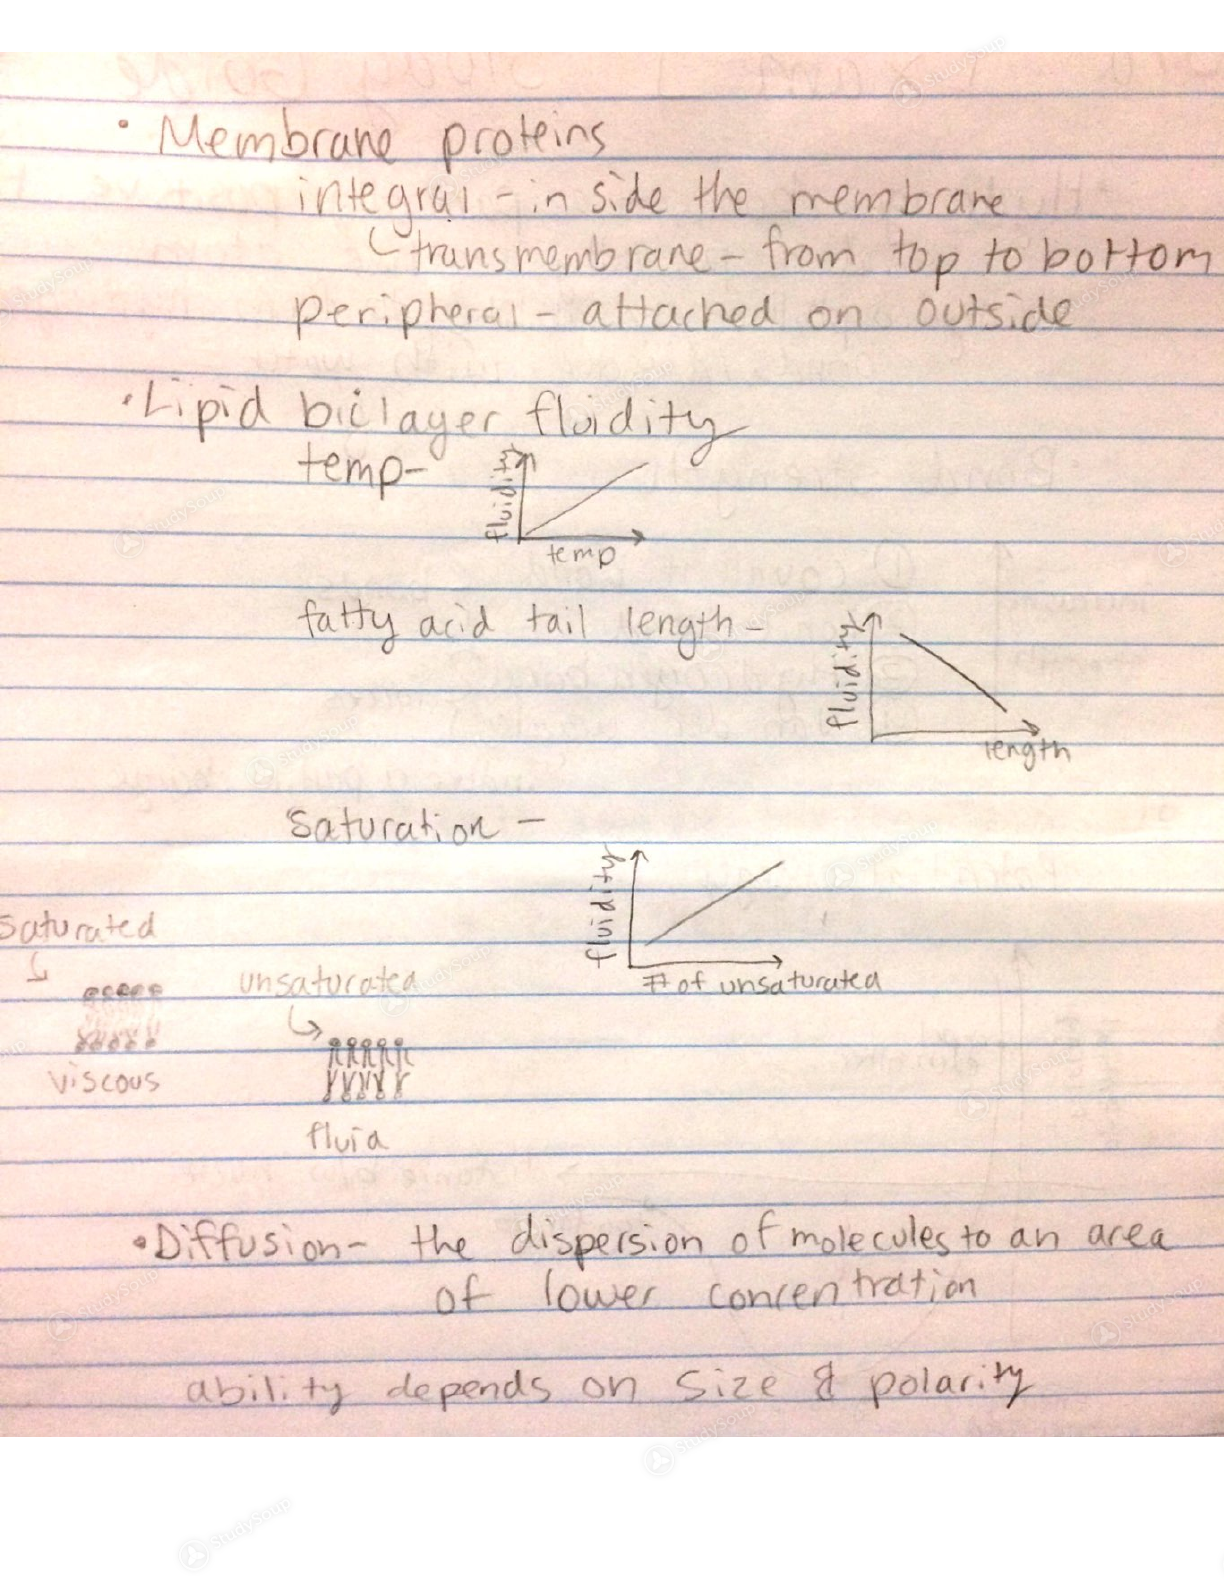 • Membrane proteins
integral - in side the membrane
transmembrane - from top to bottom
peripheral - attached on outside
• Lipid bilayer fluidity
temp-
fluidity
temp
fatty acid tail length -
fluidity
length
saturation -
fluidity
# of unsaturated
saturated
unsaturated
viscous
fluid
• Diffusion - the dispersion of molecules to an area
of lower concentration
ability depends on size & polarity
StudySoup